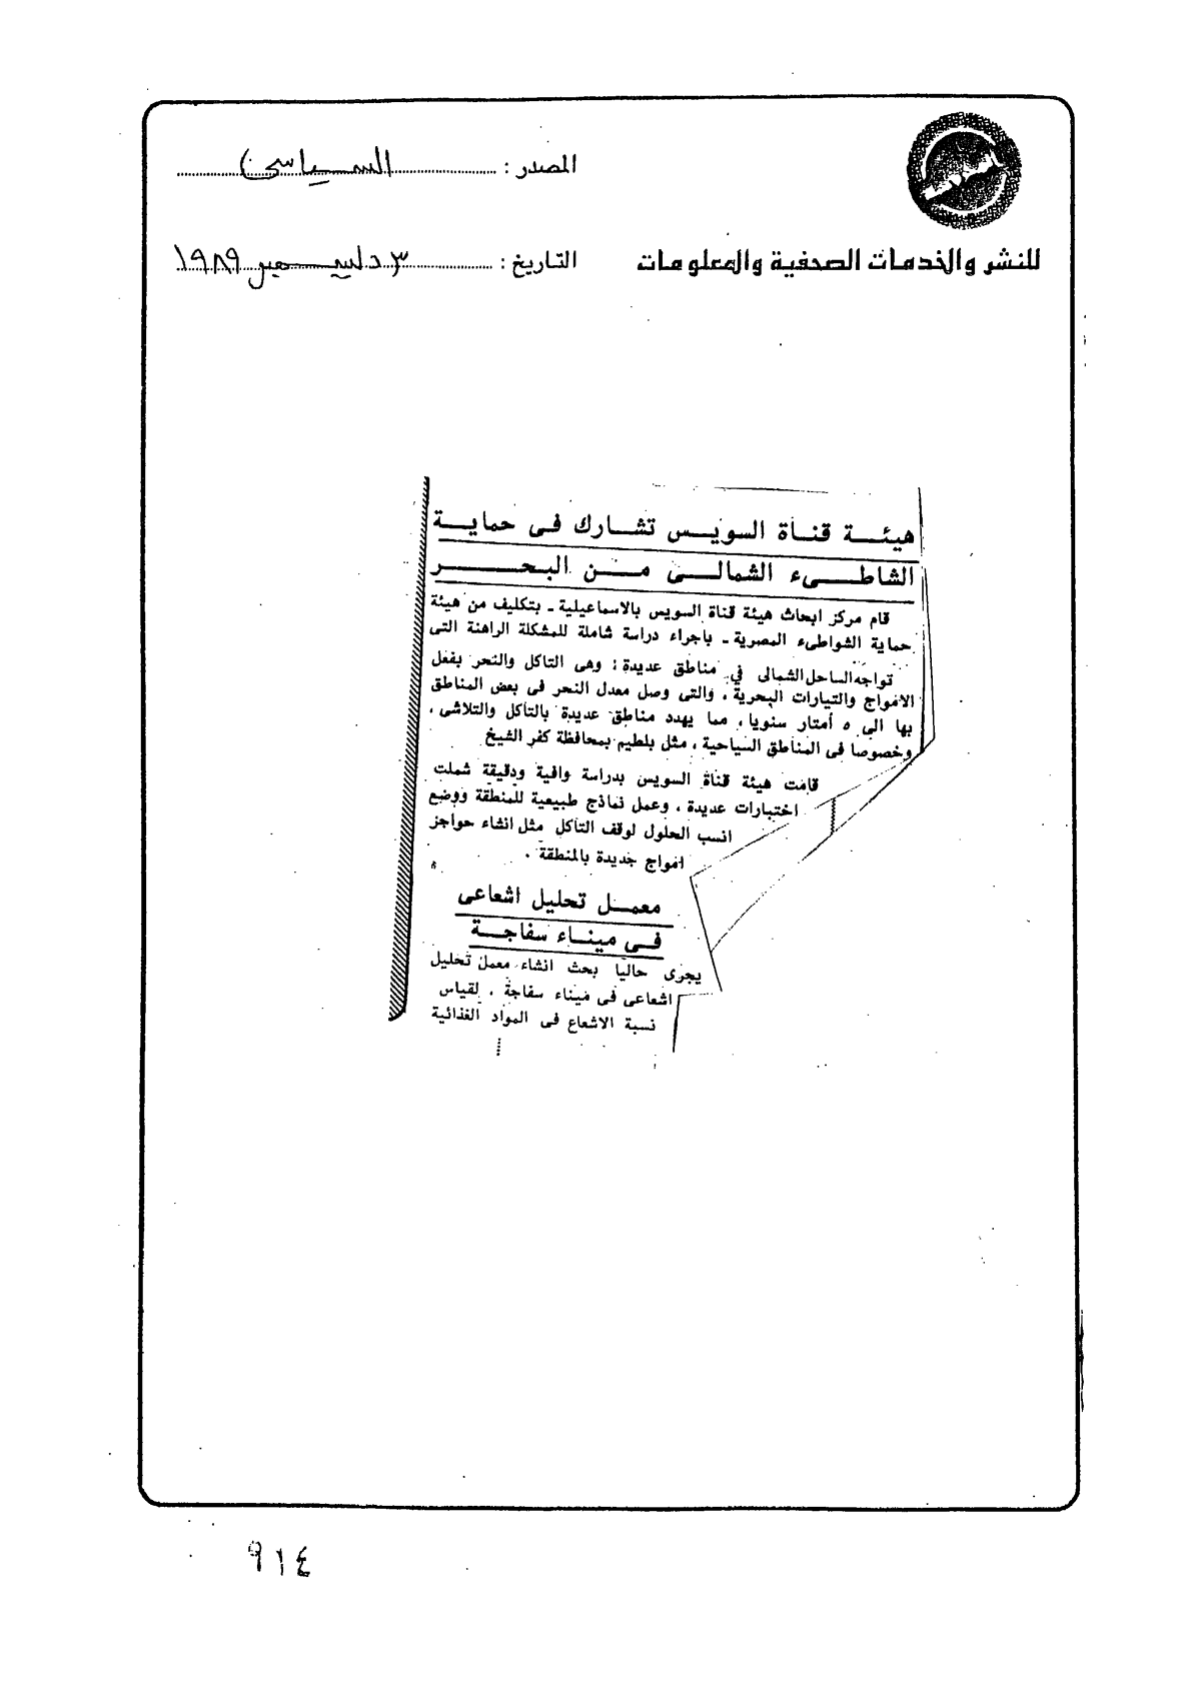 المصدر : السياسى
للنشر والخدمات الصحفية والمعلومات
التاريخ : ٣ ديسمبر ١٩٨٩
هيئة قناة السويس تشارك فى حماية
الشاطىء الشمالى من البحر
قام مركز ابحاث هيئة قناة السويس بالاسماعيلية ـ بتكليف من هيئة
حماية الشواطىء المصرية ـ باجراء دراسة شاملة للمشكلة الراهنة التى
تواجه الساحل الشمالى في مناطق عديدة : وهى التاكل والنحر بفعل
الامواج والتيارات البحرية ، والتى وصل معدل النحر فى بعض المناطق
بها الى ٥ أمتار سنويا ، مما يهدد مناطق عديدة بالتأكل والتلاشى ،
وخصوصا فى المناطق السياحية ، مثل بلطيم بمحافظة كفر الشيخ
قامت هيئة قناة السويس بدراسة وافية ودقيقة شملت
اختبارات عديدة ، وعمل نماذج طبيعية للمنطقة ووضع
انسب الحلول لوقف التاكل مثل انشاء حواجز
امواج جديدة بالمنطقة .
معمل تحليل اشعاعى
فى ميناء سفاجة
يجرى حاليا بحث انشاء معمل تحليل
اشعاعى فى ميناء سفاجة ، لقياس
نسبة الاشعاع فى المواد الغذائية
٩١٤